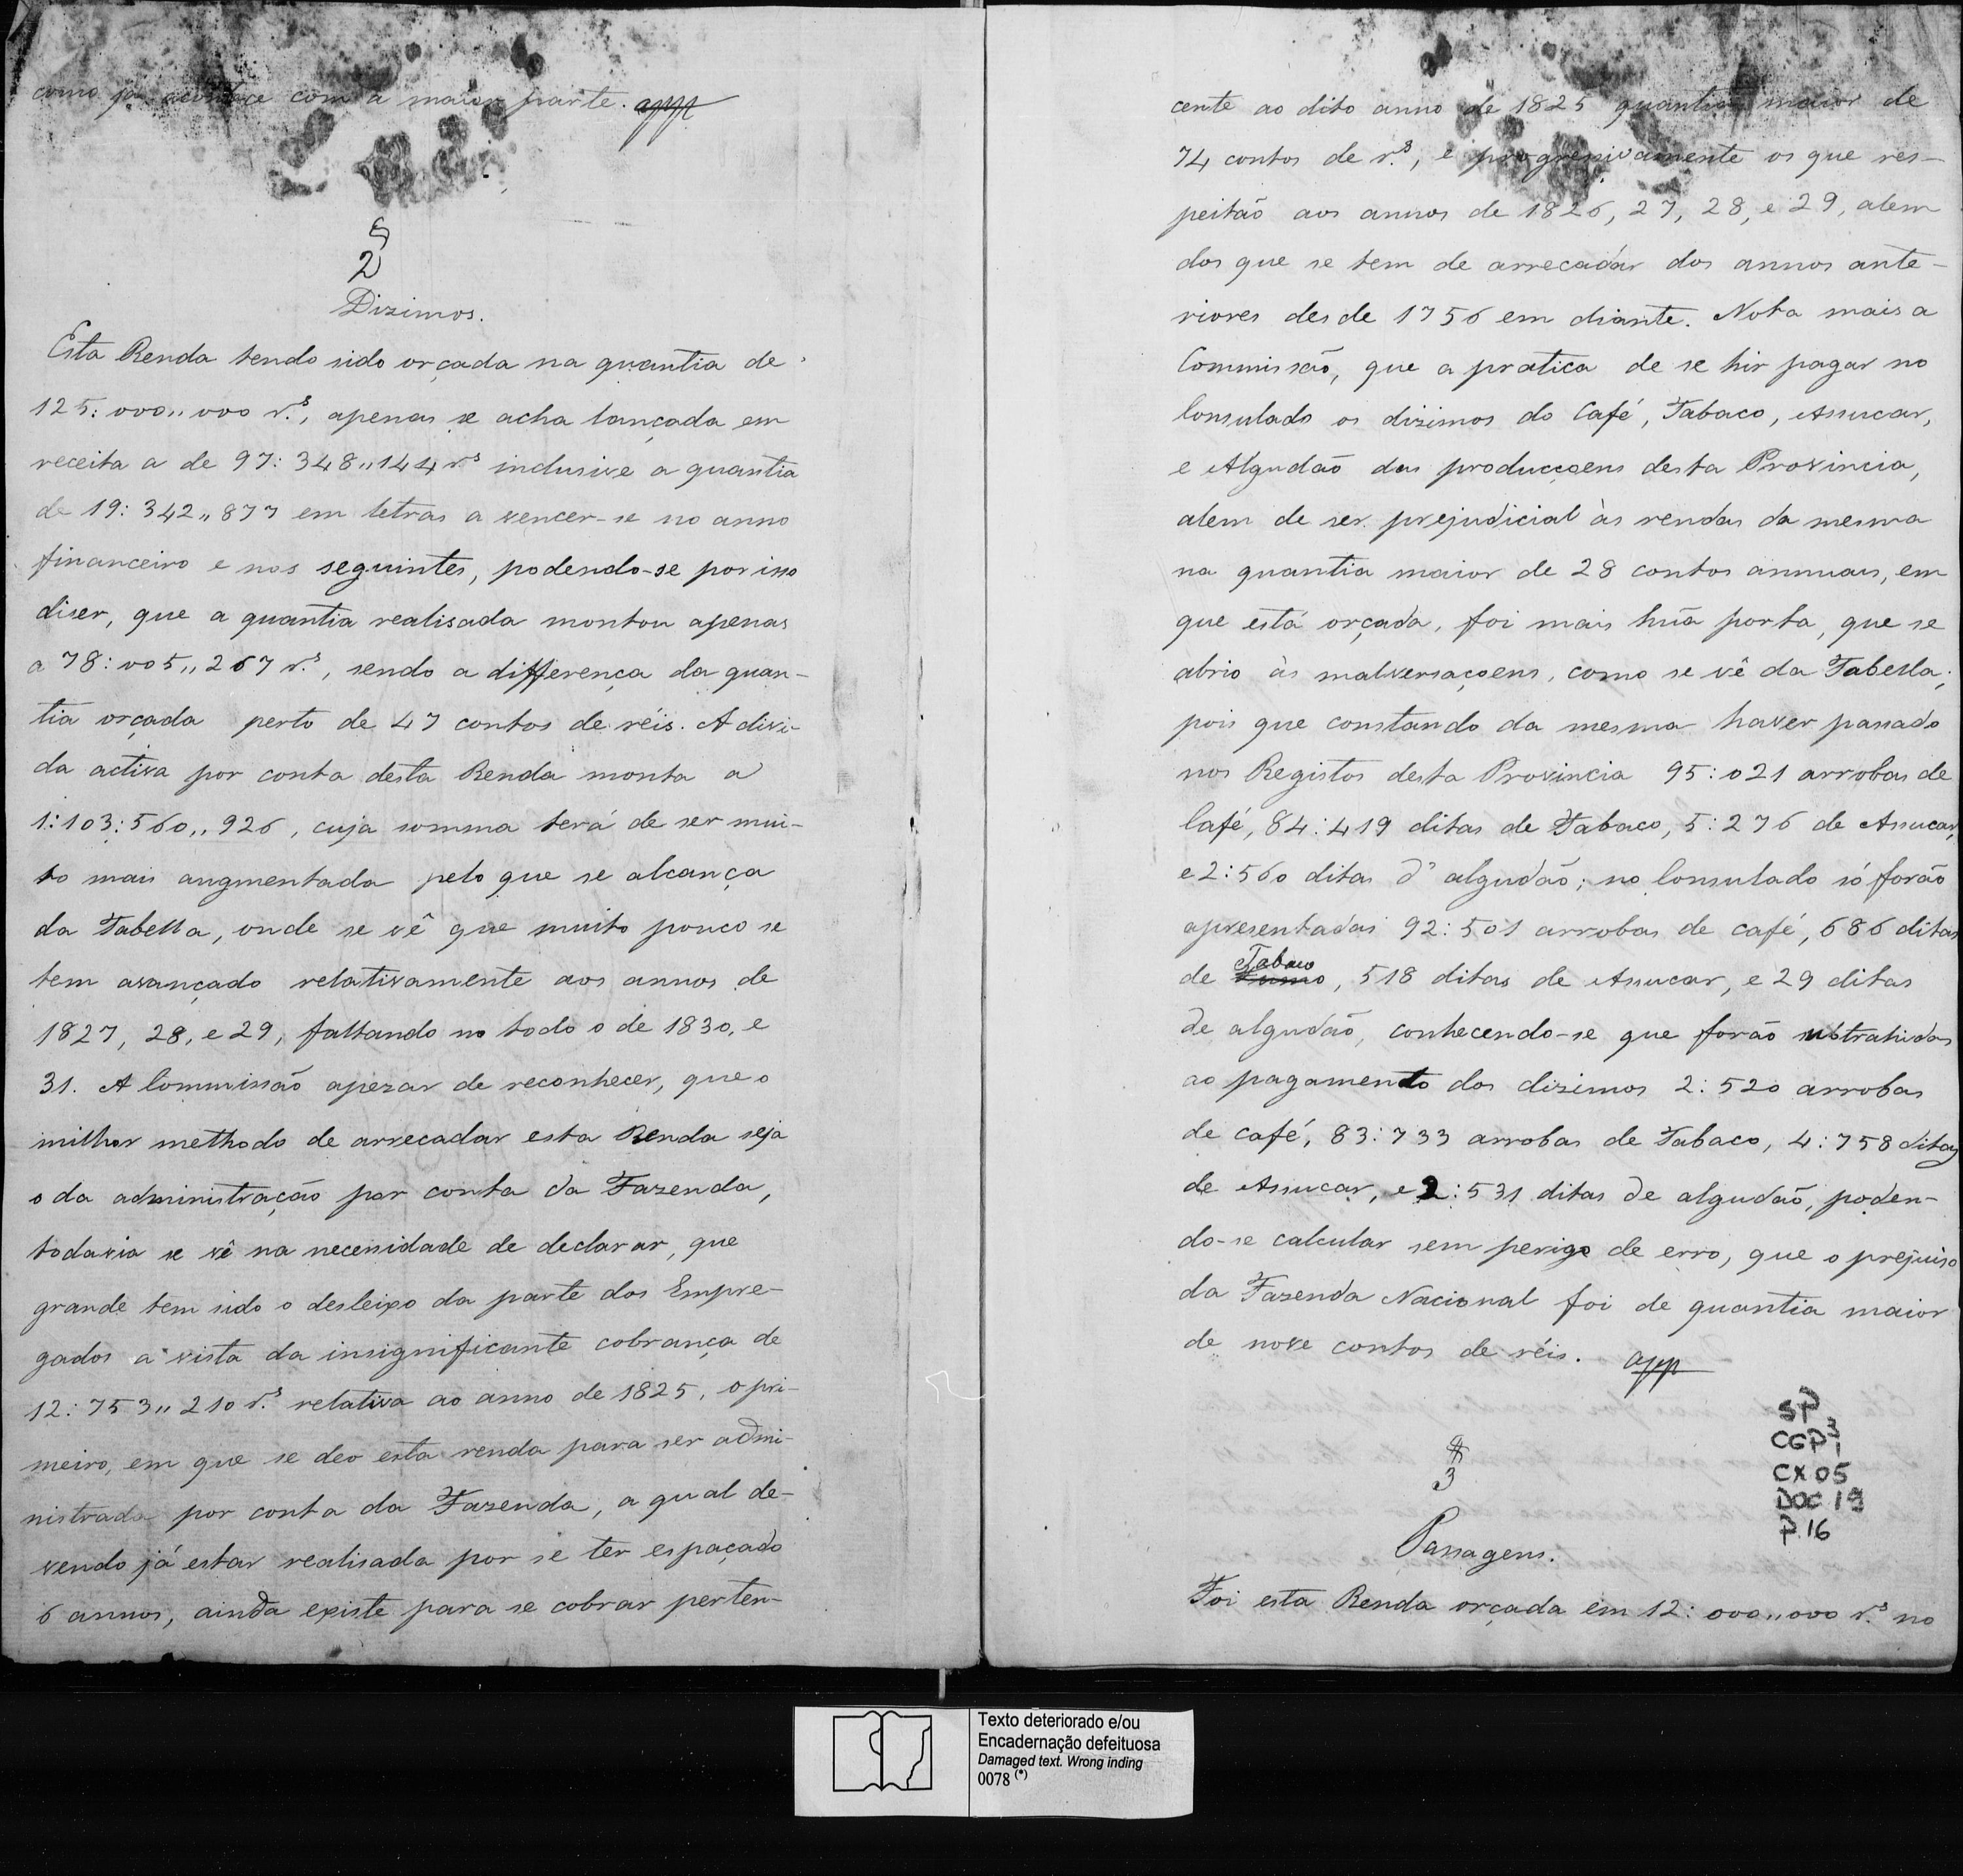 como já acontece com a maior parte.
§
2
Dizimos.
Esta Renda tendo sido orçada na quantia de
125:000,,000 r.s, apenas se acha lançada em
receita a de 97:348,,144 r.s inclusive a quantia
de 19:342,,877 em letras a vencer-se no anno
financeiro e nos seguintes, podendo-se por isso
diser, que a quantia realisada montou apenas
a 78:005,,267 r.s, sendo a differença da quan-
tia orçada perto de 47 contos de réis. A divi-
da activa por conta desta Renda monta a
1:103:560,,926, cuja somma terá de ser mui-
to mais augmentada pelo que se alcança
da Tabella, onde se vê que muito pouco se
tem avançado relativamente aos annos de
1827, 28, e 29, faltando no todo o de 1830, e
31. A Commissão apezar de reconhecer, que o
milhor methodo de arrecadar esta Renda seja
o da administração por conta da Fazenda,
todavia se vê na necessidade de declarar, que
grande tem sido o desleixo da parte dos Empre-
gados a vista da insignificante cobrança de
12:753,,210 r.s relativa ao anno de 1825, o pri-
meiro, em que se deo esta renda para ser admi-
nistrada por conta da Fazenda, a qual de-
vendo já estar realisada por se ter espaçado
6 annos, ainda existe para se cobrar perten-
cente ao dito anno de 1825 quantia maior de
74 contos de r.s, e progressivamente os que res-
peitão aos annos de 1826, 27, 28, e 29, alem
dos que se tem de arrecadar dos annos ante-
riores desde 1756 em diante. Nota mais a
Commissão, que a pratica de se hir pagar no
Consulado os dizimos do Café, Tabaco, Assucar,
e Algudão das producçoens desta Provincia,
alem de ser prejudicial às rendas da mesma
na quantia maior de 28 contos annuaes, em
que está orçada, foi mais hũa porta, que se
abrio às malversaçoens, como se vê da Tabella;
pois que constando da mesma haver passado
nos Registos desta Provincia 95:021 arrobas de
Café, 84:419 ditas de Tabaco, 5:276 de Assucar,
e 2:560 ditas d'algudão; no Consulado só forão
apresentadas 92:501 arrobas de café, 686 ditas
de Tabaco, 518 ditas de Assucar, e 29 ditas
de algudão, conhecendo-se que forão subtrahidas
ao pagamento dos dizimos 2:520 arrobas
de café, 83:733 arrobas de Tabaco, 4:758 ditas
de Assucar, e 2:531 ditas de algudão, poden-
do-se calcular sem perigo de erro, que o prejuiso
da Fazenda Nacional foi de quantia maior
de nove contos de réis.
SP
CGP 3
1
CX 05
DOC 19
P.16
§
3
Passagens.
Foi esta Renda orçada em 12:000,,000 r.s no
Texto deteriorado e/ou
Encadernação defeituosa
Damaged text. Wrong inding
0078 (*)